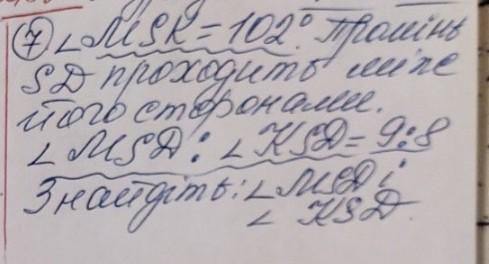 ⑦ ∠MSK = 102°. Промінь
SD проходить між
його сторонами.
∠MSD : ∠KSD = 9:8
Знайдіть: ∠MSD і
∠KSD.